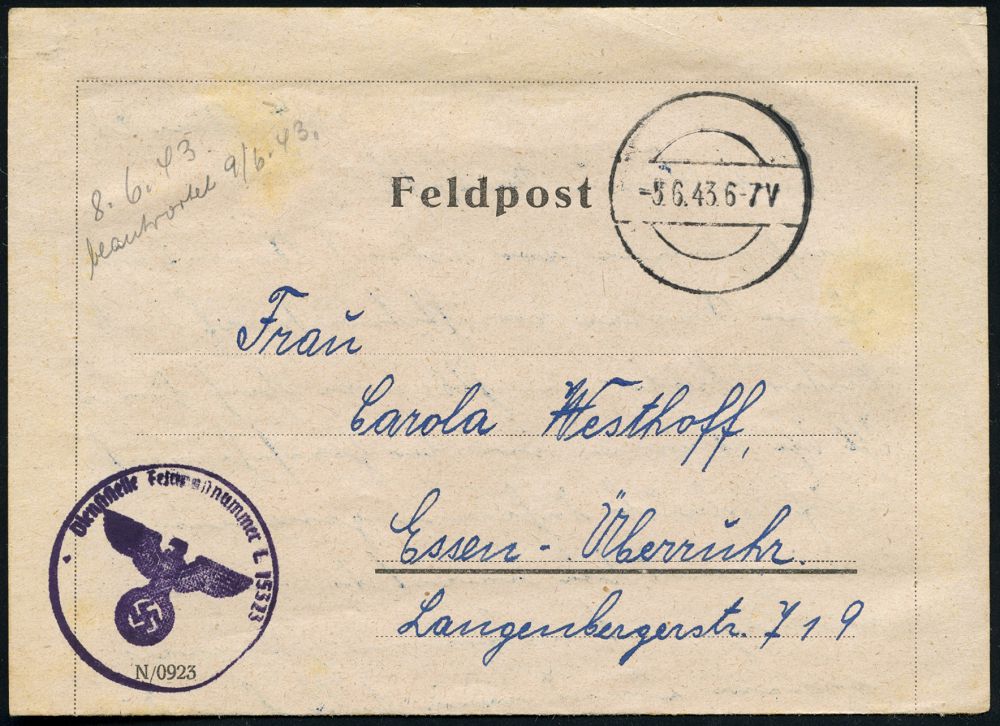 8.6.43.
beantwortet 9/6.43.
Feldpost
-5.6.43.6-7V
Frau
Carola Westhoff,
Essen-Überruhr.
Langenbergerstr. 719
Dienststelle Feldpostnummer L 15323
N/0923